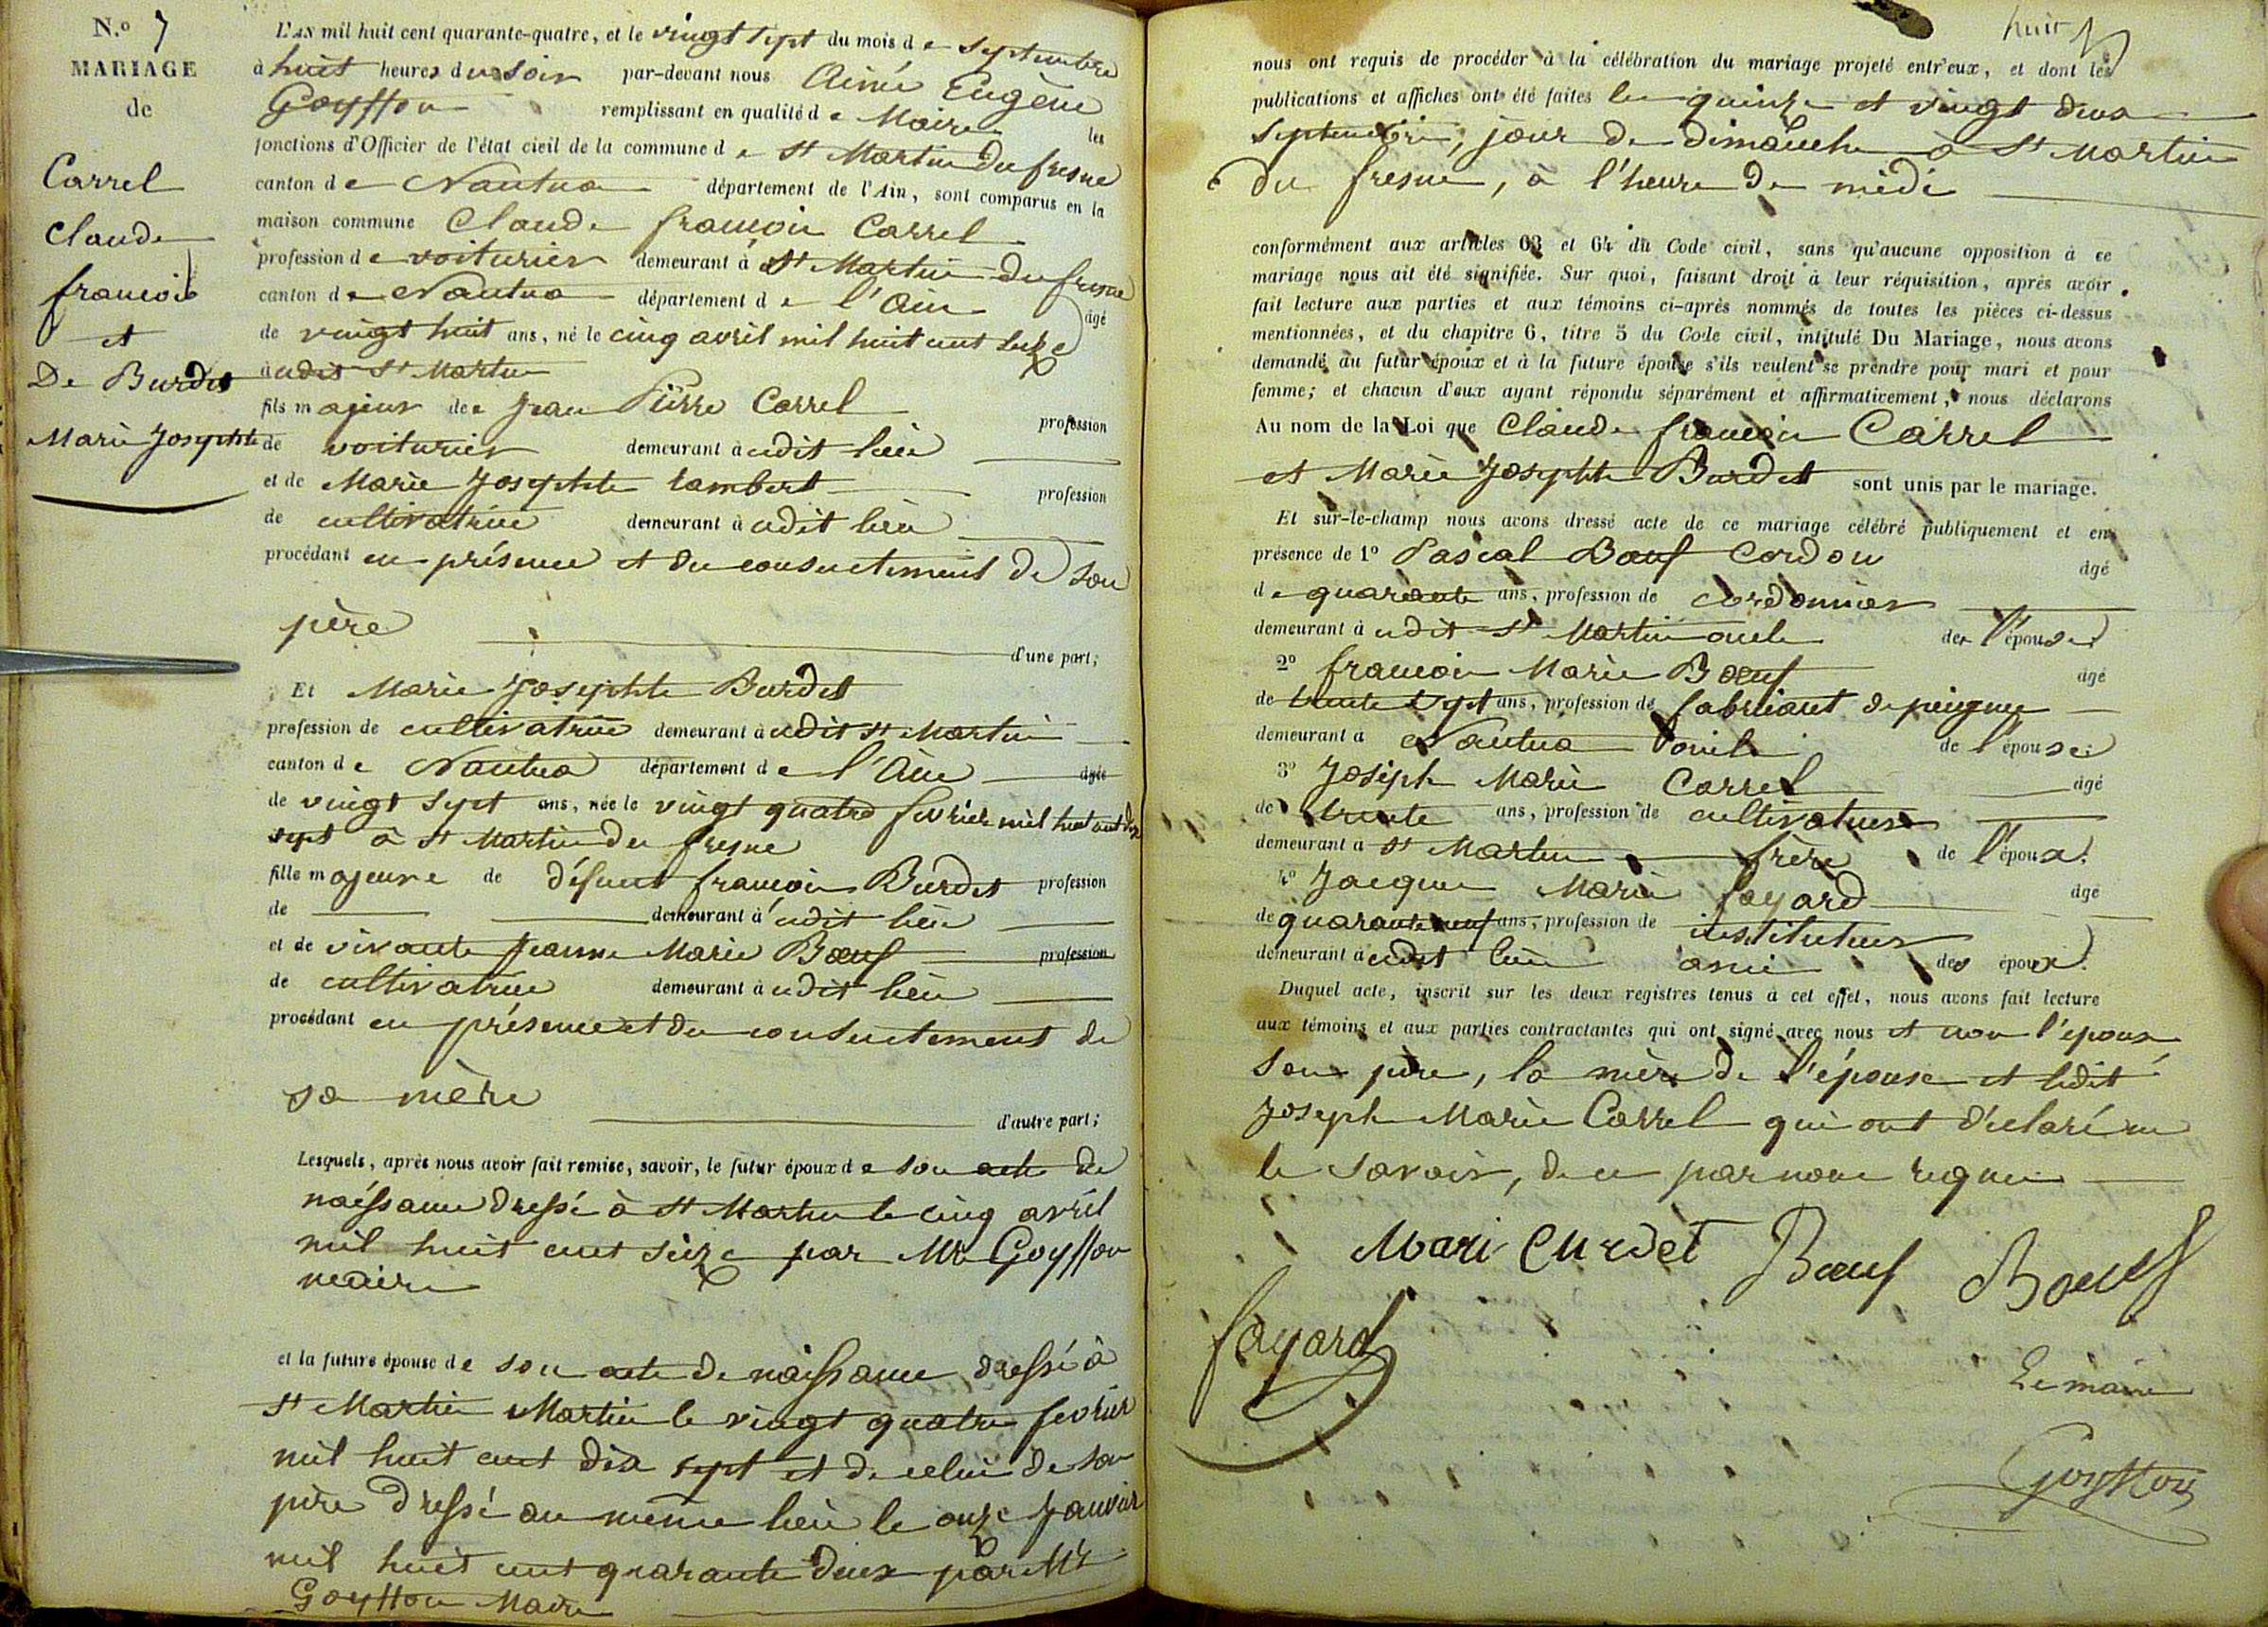 N.o 7
MARIAGE
de
Carrel
Claude
françois
et
De Burdet
Marie Josephte
L'AN mil huit cent quarante-quatre, et le vingt sept du mois de septembre
à huit heures du soir par-devant nous Aimé Eugène
Goyffon remplissant en qualité de Maire les
fonctions d'Officier de l'état civil de la commune de St Martin du fresne
canton de Nantua département de l'Ain, sont comparus en la
maison commune Claude françois Carrel
profession de voiturier demeurant à St Martin du fresne
canton de Nantua département de l'Ain âgé
de vingt huit ans, né le cinq avril mil huit cent seize
audit St Martin
fils majeur de Jean Pierre Carrel profession
de voiturier demeurant audit lieu
et de Marie Josephte Lambert profession
de cultivatrice demeurant à udit lieu
procédant en présence et du consentement de son
père
d'une part;
Et Marie Josephte Burdet
profession de cultivatrice demeurant à udit St Martin
canton de Nantua département de l'Ain âgée
de vingt sept ans, née le vingt quatre fevrier mil huit cent dix
sept à St Martin du fresne
fille majeure de défunt françois Burdet profession
de demeurant à udit lieu
et de vivante Jeanne Marie Bœuf profession
de cultivatrice demeurant à udit lieu
procédant en présence et du consentement de
sa mère
d'autre part;
Lesquels, après nous avoir fait remise, savoir, le futur époux de son acte de
naissance dressé à St Martin le cinq avril
mil huit cent seize par Mr Goyffon
maire
et la future épouse de son acte de naissance dressé à
St Martin Martin le vingt quatre fevrier
mil huit cent dix sept et de celui de son
père dressé au même lieu le onze Janvier
mil huit cent quarante deux par Mr
Goyffon Maire
huit
nous ont requis de procéder à la célébration du mariage projeté entr'eux, et dont les
publications et affiches ont été faites les quinze et vingt deux
septembre, jour de dimanche à St Martin
du fresne, à l'heure de midi
conformément aux articles 63 et 64 du Code civil, sans qu'aucune opposition à ce
mariage nous ait été signifiée. Sur quoi, faisant droit à leur réquisition, après avoir
fait lecture aux parties et aux témoins ci-après nommés de toutes les pièces ci-dessus
mentionnées, et du chapitre 6, titre 5 du Code civil, intitulé Du Mariage, nous avons
demandé au futur époux et à la future épouse s'ils veulent se prendre pour mari et pour
femme; et chacun d'eux ayant répondu séparément et affirmativement, nous déclarons
Au nom de la Loi que Claude françois Carrel
et Marie Josephte Burdet sont unis par le mariage.
Et sur-le-champ nous avons dressé acte de ce mariage célébré publiquement et en
présence de 1o Pascal Bœuf Cordon âgé
de quarante ans, profession de cordonnier
demeurant à udit St Martin oncle de l'épouse
2o françois Marie Bœuf âgé
de trente sept ans, profession de fabricant de peignes
demeurant à Nantua de l'épouse
3o Joseph Marie Carrel âgé
de trente ans, profession de cultivateur
demeurant à St Martin frère de l'époux.
4o Jacques Marie fayard âgé
de quarante neuf ans, profession de instituteur
demeurant à udit lieu ami des époux.
Duquel acte, inscrit sur les deux registres tenus à cet effet, nous avons fait lecture
aux témoins et aux parties contractantes qui ont signé avec nous et non l'époux
son père, la mère de l'épouse et ledit
Joseph Marie Carrel qui ont déclaré ne
le savoir, de ce par nous requis
Mari Burdet Bœuf Boeuf
fayard
Le maire
Goyffon